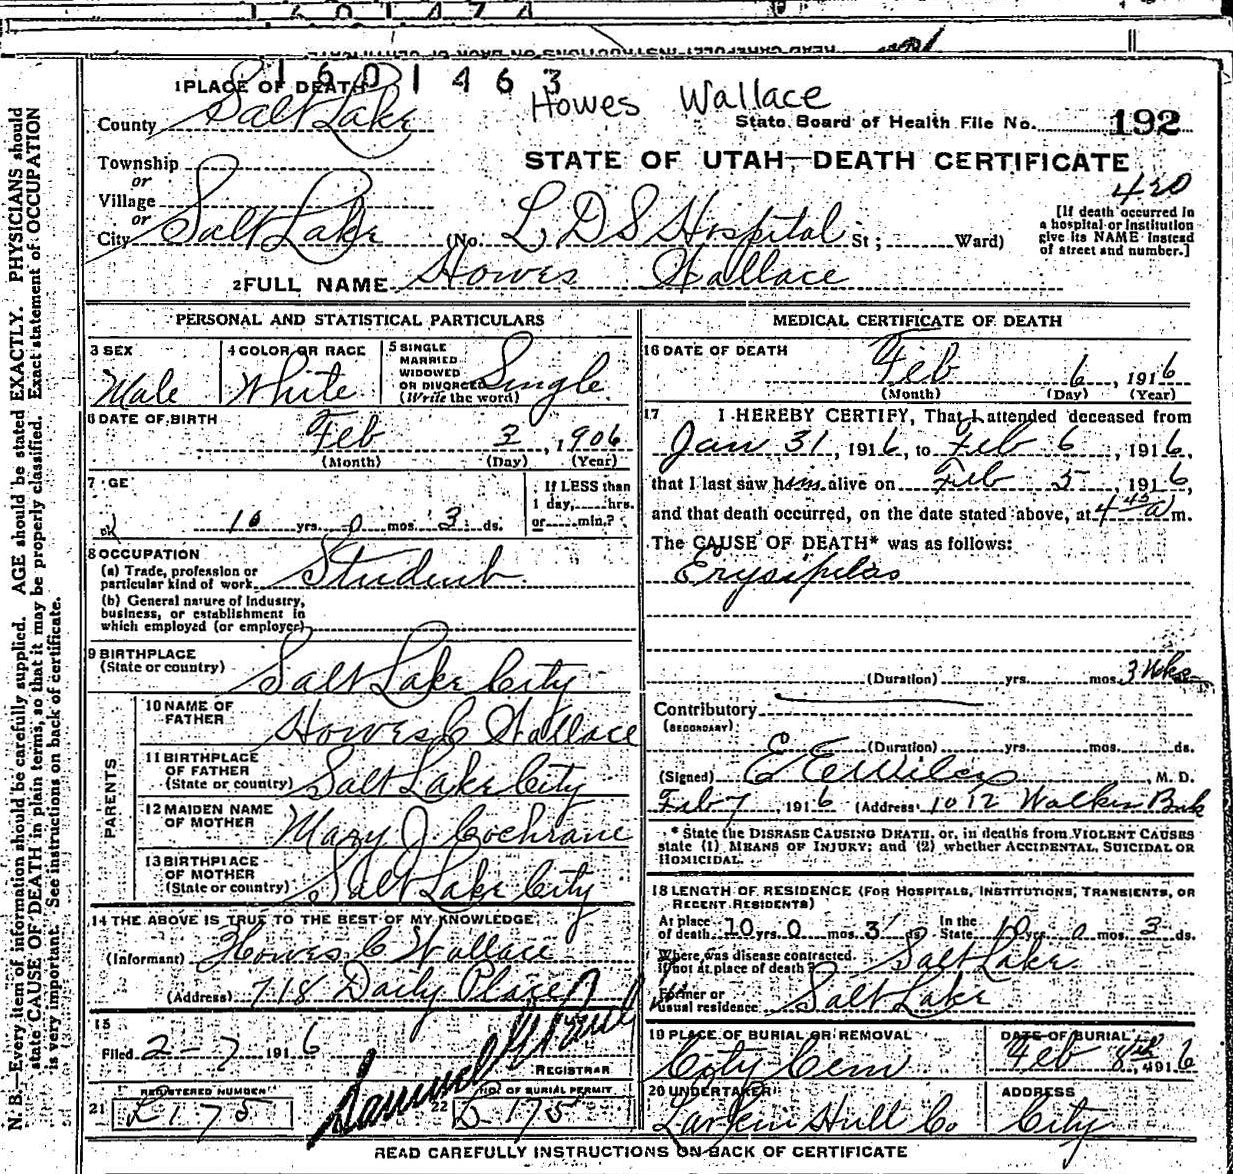 1601463
Howes Wallace
1 PLACE OF DEATH
County Salt Lake
State Board of Health File No. 192
STATE OF UTAH—DEATH CERTIFICATE
Township
or
Village
or
City Salt Lake (No. L D S Hospital St; Ward)
420
[If death occurred in
a hospital or institution
give its NAME instead
of street and number.]
2 FULL NAME Howes Wallace
PERSONAL AND STATISTICAL PARTICULARS
3 SEX Male
4 COLOR OR RACE White
5 SINGLE
MARRIED
WIDOWED
OR DIVORCED
(Write the word) Single
6 DATE OF BIRTH
Feb 3, 1906
(Month) (Day) (Year)
7 GE
10 yrs. 0 mos. 3 ds.
If LESS than
1 day, hrs.
or min.?
8 OCCUPATION
(a) Trade, profession or
particular kind of work Student
(b) General nature of Industry,
business, or establishment in
which employed (or employer)
9 BIRTHPLACE
(State or country) Salt Lake City
PARENTS
10 NAME OF
FATHER Howes C Wallace
11 BIRTHPLACE
OF FATHER
(State or country) Salt Lake City
12 MAIDEN NAME
OF MOTHER Mary J. Cochrane
13 BIRTHPLACE
OF MOTHER
(State or country) Salt Lake City
14 THE ABOVE IS TRUE TO THE BEST OF MY KNOWLEDGE
(Informant) Howes C Wallace
(Address) 718 Daily Place
15
Filed 2-7 1916
REGISTRAR
REGISTERED NUMBER
21 £175
NO. OF BURIAL PERMIT
22 £175
MEDICAL CERTIFICATE OF DEATH
16 DATE OF DEATH
Feb 6, 1916
(Month) (Day) (Year)
17 I HEREBY CERTIFY, That I attended deceased from
Jan 31, 1916, to Feb 6, 1916,
that I last saw him alive on Feb 5, 1916,
and that death occurred, on the date stated above, at 4 45 a m.
The CAUSE OF DEATH* was as follows:
Erysipelas
(Duration) yrs. mos. 3 Wks
Contributory
(SECONDARY)
(Duration) yrs. mos. ds.
(Signed) E E Wilcox M. D.
Feb 7, 1916 (Address) 1012 Walker Bnk
* State the DISEASE CAUSING DEATH, or, in deaths from VIOLENT CAUSES
state (1) MEANS OF INJURY; and (2) whether ACCIDENTAL, SUICIDAL OR
HOMICIDAL.
18 LENGTH OF RESIDENCE (FOR HOSPITALS, INSTITUTIONS, TRANSIENTS, OR
RECENT RESIDENTS)
At place
of death 10 yrs. 0 mos. 3 ds.
In the
State 10 yrs. 0 mos. 3 ds.
Where was disease contracted
if not at place of death? Salt Lake
Former or
usual residence Salt Lake
19 PLACE OF BURIAL OR REMOVAL
City Cem
DATE OF BURIAL
Feb 8th, 1916
20 UNDERTAKER
Larkin Hull Co
ADDRESS
City
READ CAREFULLY INSTRUCTIONS ON BACK OF CERTIFICATE
N. B.—Every item of information should be carefully supplied. AGE should be stated EXACTLY. PHYSICIANS should
state CAUSE OF DEATH in plain terms, so that it may be properly classified. Exact statement of OCCUPATION
is very important. See instructions on back of certificate.